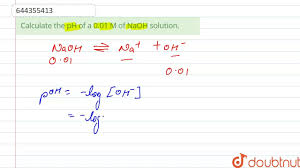 644355413
Calculate the pH of a 0.01 M of NaOH solution.
NaOH ⇌ Na⁺ + OH⁻
0.01 0.01
pOH = -log [OH⁻]
= -log
doubtnut